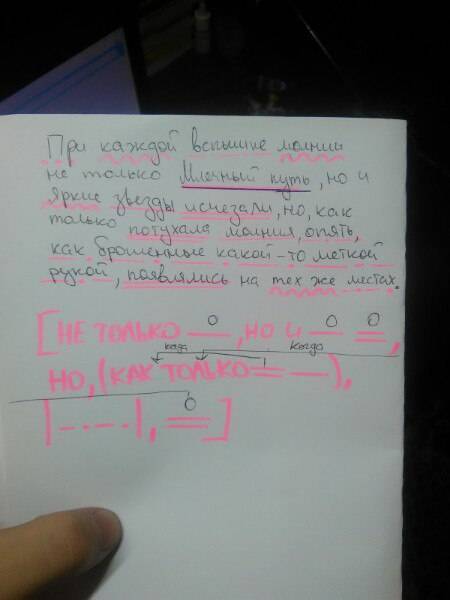 При каждой вспышке молнии
не только Млечный путь, но и
яркие звезды исчезали, но, как
только потухала молния, опять,
как брошенные какой-то меткой
рукой, появлялись на тех же местах.
[НЕ ТОЛЬКО О, НО И О О,
когда когда
НО, (КАК ТОЛЬКО 1),
|, О]